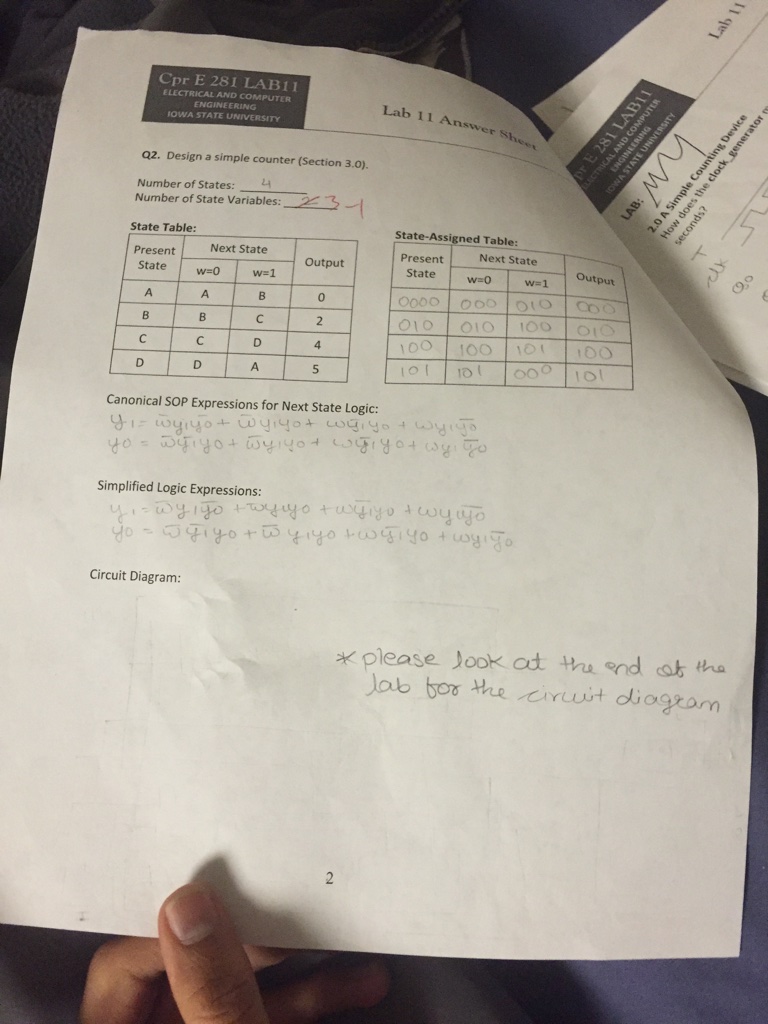 Cpr E 281 LAB11
ELECTRICAL AND COMPUTER
ENGINEERING
IOWA STATE UNIVERSITY
Lab 11 Answer Sheet
Q2. Design a simple counter (Section 3.0).
Number of States: 4
Number of State Variables: 2 3 -1
State Table:
Present State | Next State | Output
w=0 | w=1
A | A | B | 0
B | B | C | 2
C | C | D | 4
D | D | A | 5
State-Assigned Table:
Present State | Next State | Output
w=0 | w=1
0000 | 000 | 010 | 000
010 | 010 | 100 | 010
100 | 100 | 101 | 100
101 | 101 | 000 | 101
Canonical SOP Expressions for Next State Logic:
y1 = w̅y1y̅0 + w̅y1y0 + wy̅1y0 + wy1y̅0
y0 = w̅y̅1y0 + w̅y1y0 + wy̅1y0 + wy1y̅0
Simplified Logic Expressions:
y1 = w̅y1y̅0 + w̅y1y0 + wy̅1y0 + wy1y̅0
y0 = w̅y̅1y0 + w̅y1y0 + wy̅1y0 + wy1y̅0
Circuit Diagram:
* please look at the end of the
lab for the circuit diagram
2
Lab 11
E 281 LAB11
AND COMPUTER
ENGINEERING
IOWA STATE UNIVERSITY
LAB:
2.0 A Simple Counting Device
How does the clock_generator
seconds?
clk
Q0